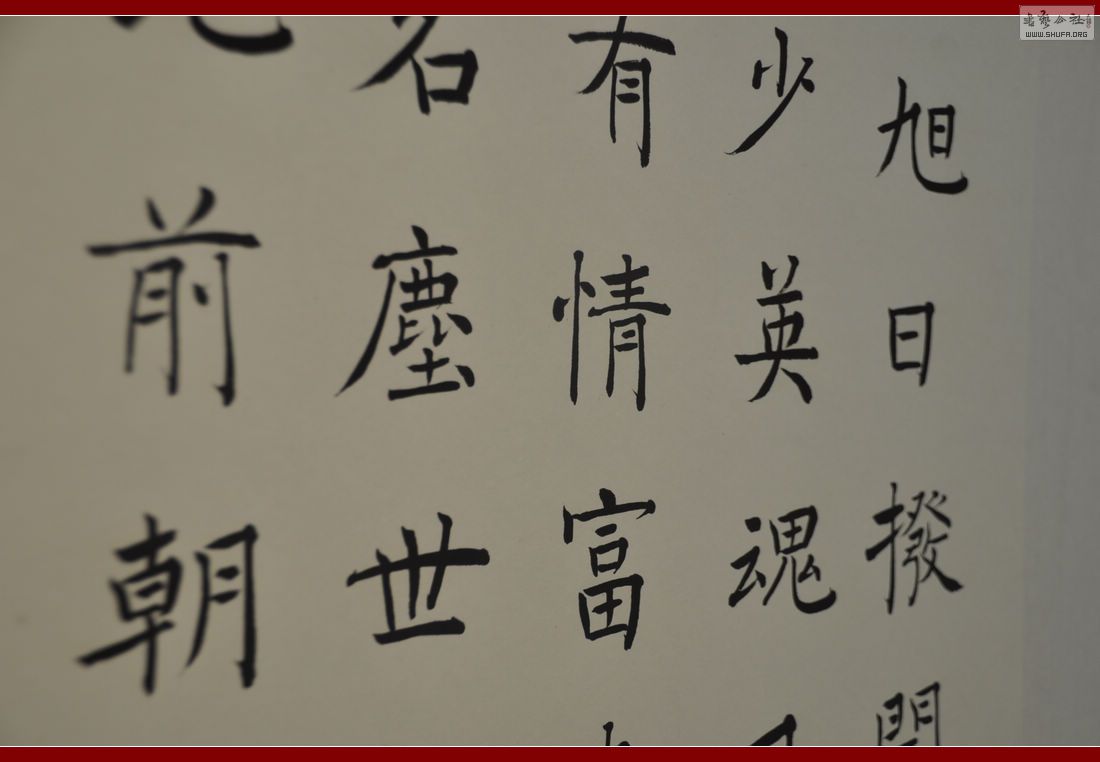 旭日撥開
少英魂
有情富
名塵世
前朝
書藝公社
WWW.SHUFA.ORG